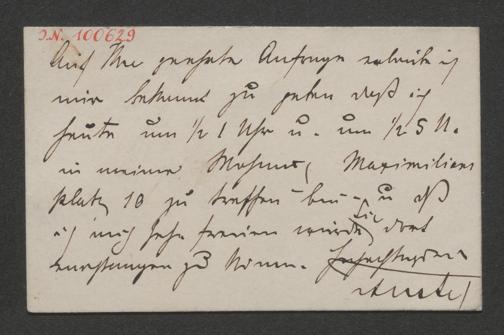 I.N. 100629
Auf Ihre geehrte Anfrage erlaube ich
mir bekannt zu geben daß ich
heute um ½ 1 Uhr u. um ½ 5 U.
in meiner Wohnung Maximilians
platz 10 zu treffen bin u daß
ich mich sehr freuen würde Sie dort
empfangen zu können.